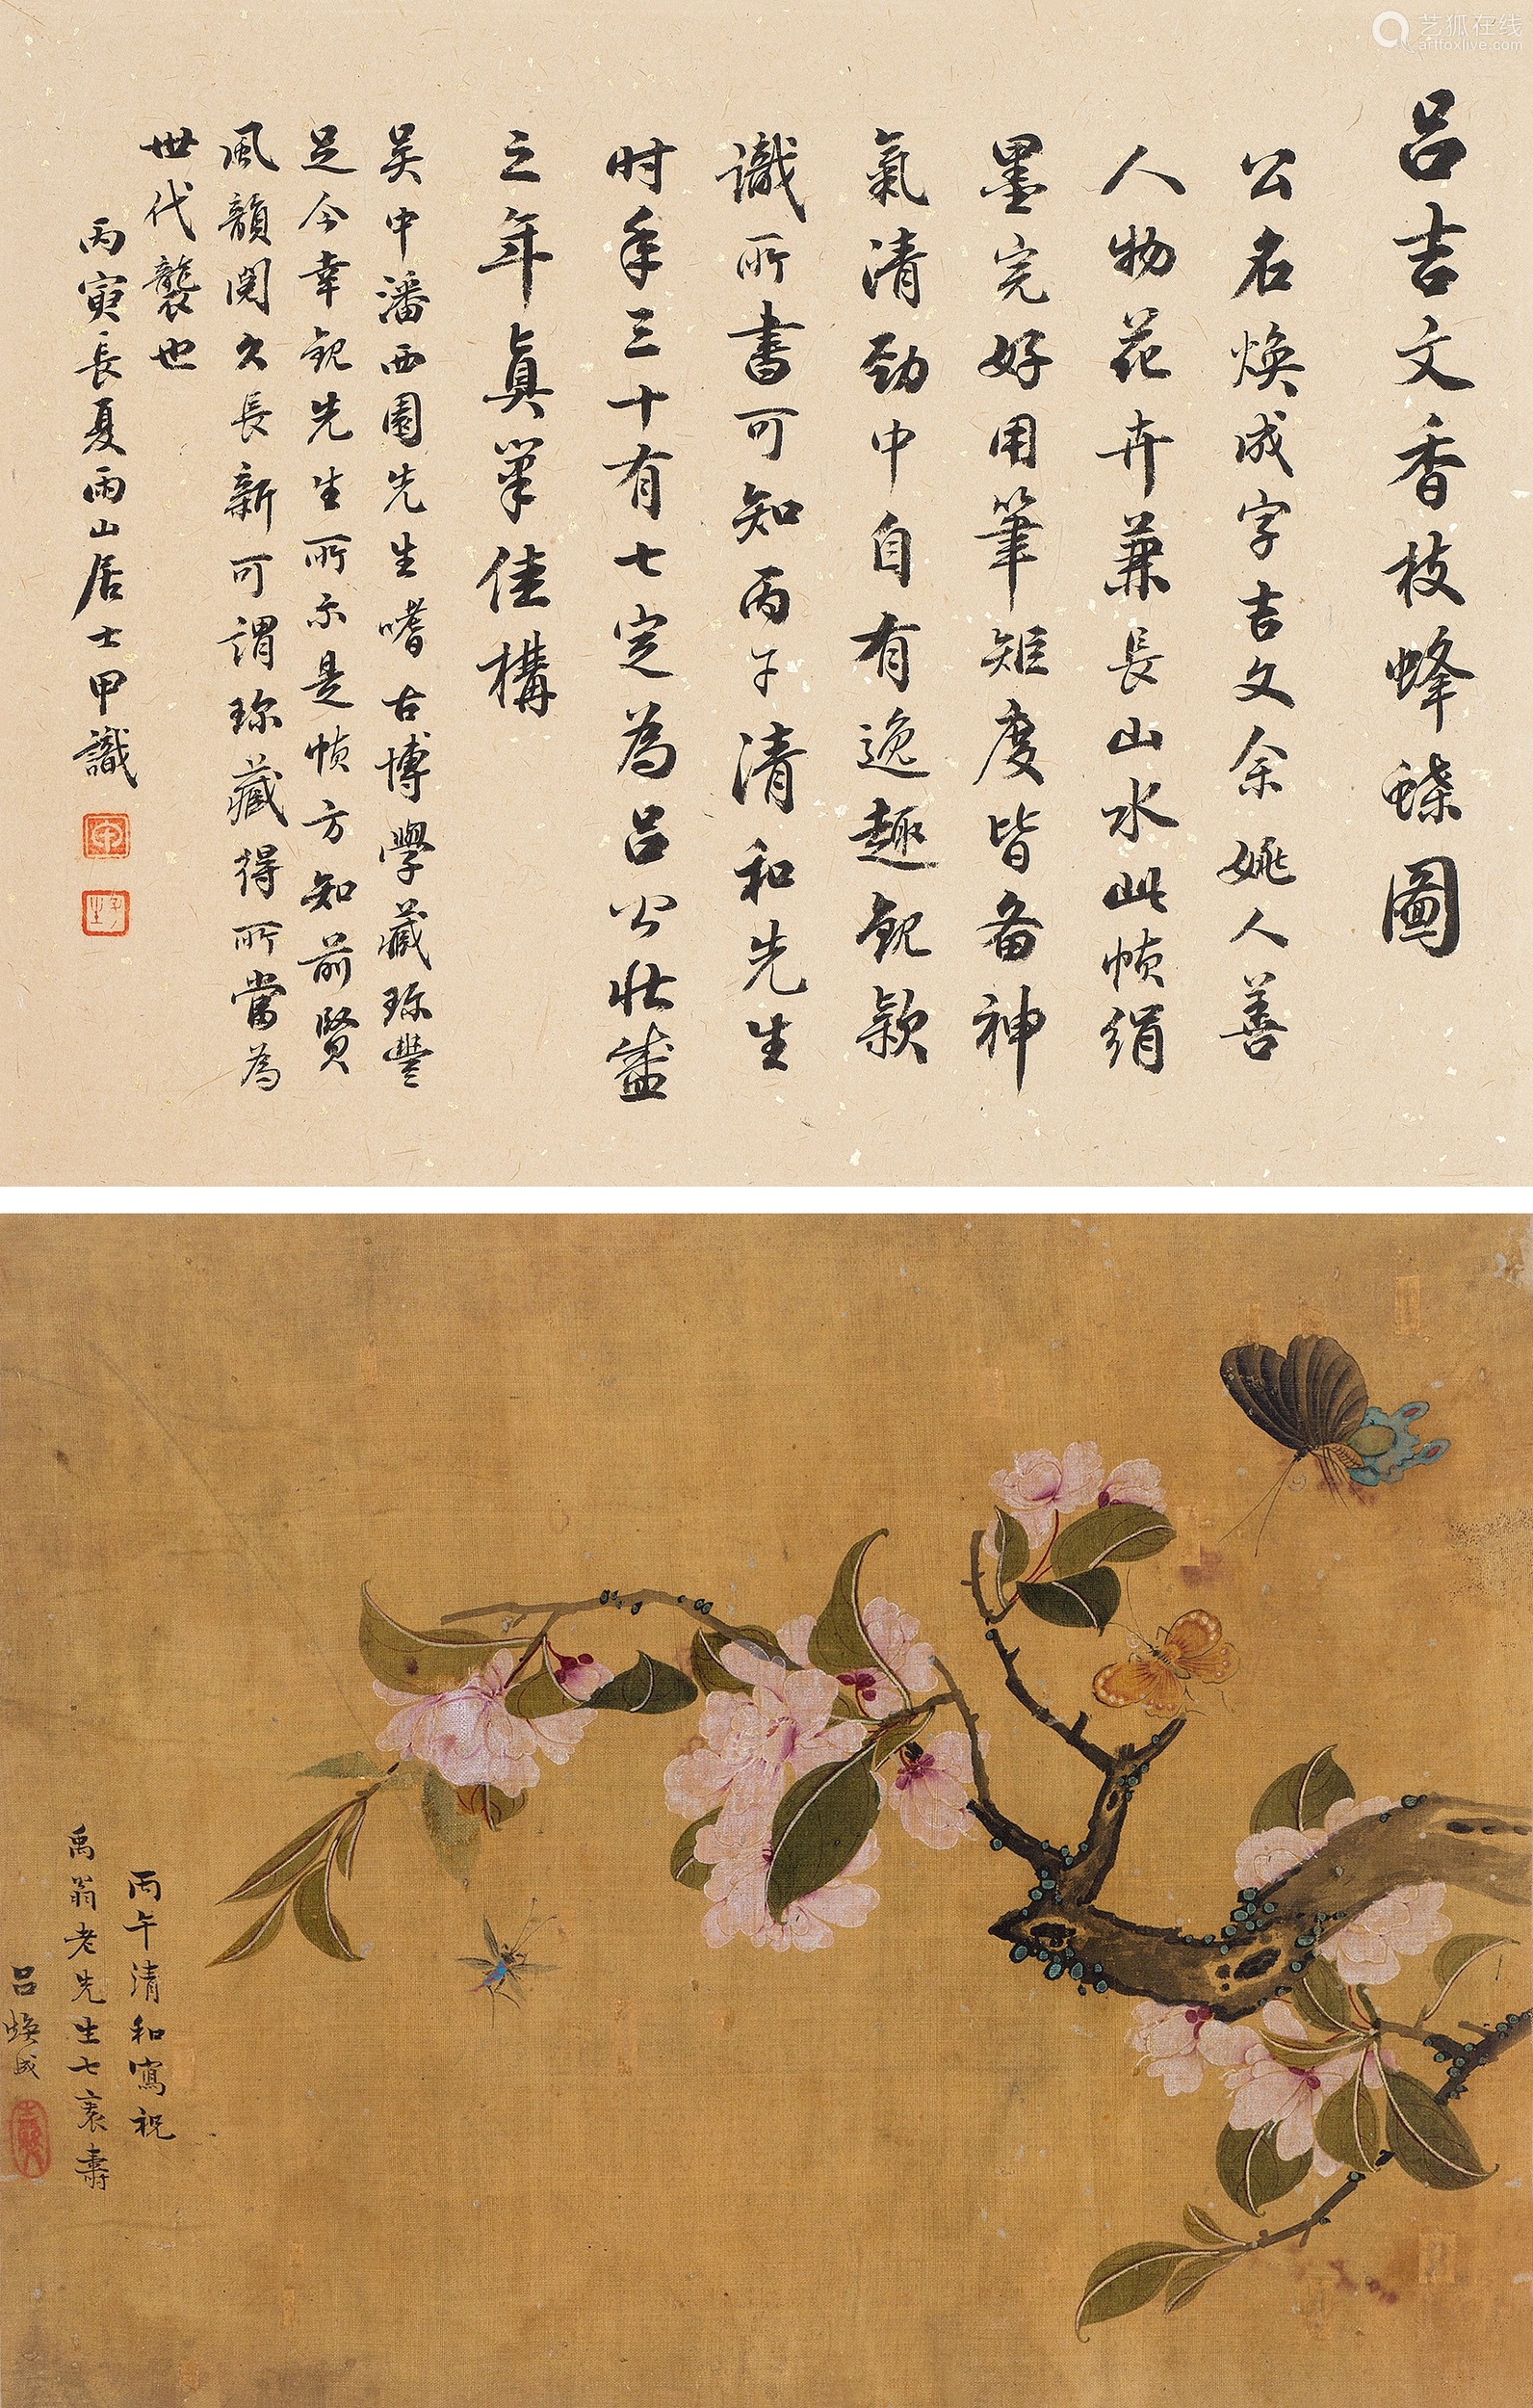 艺狐在线
artfoxlive.com
吕吉文香枝蜂蝶圖
公名焕成字吉文余姚人善
人物花卉兼長山水此幀绢
墨完好用筆矩度皆备神
氣清劲中自有逸趣観款
識所書可知丙子清和先生
时年三十有七定為吕公壮盛
之年真筆佳構
吴中潘西園先生嗜古博學藏珎豐
足今幸観先生所示是幀方知前賢
風韻閱久長新可謂珎藏得所當為
世代襲也
丙寅長夏雨山居士甲識
丙午清和寫祝
禹翁老先生七袠壽
吕焕成